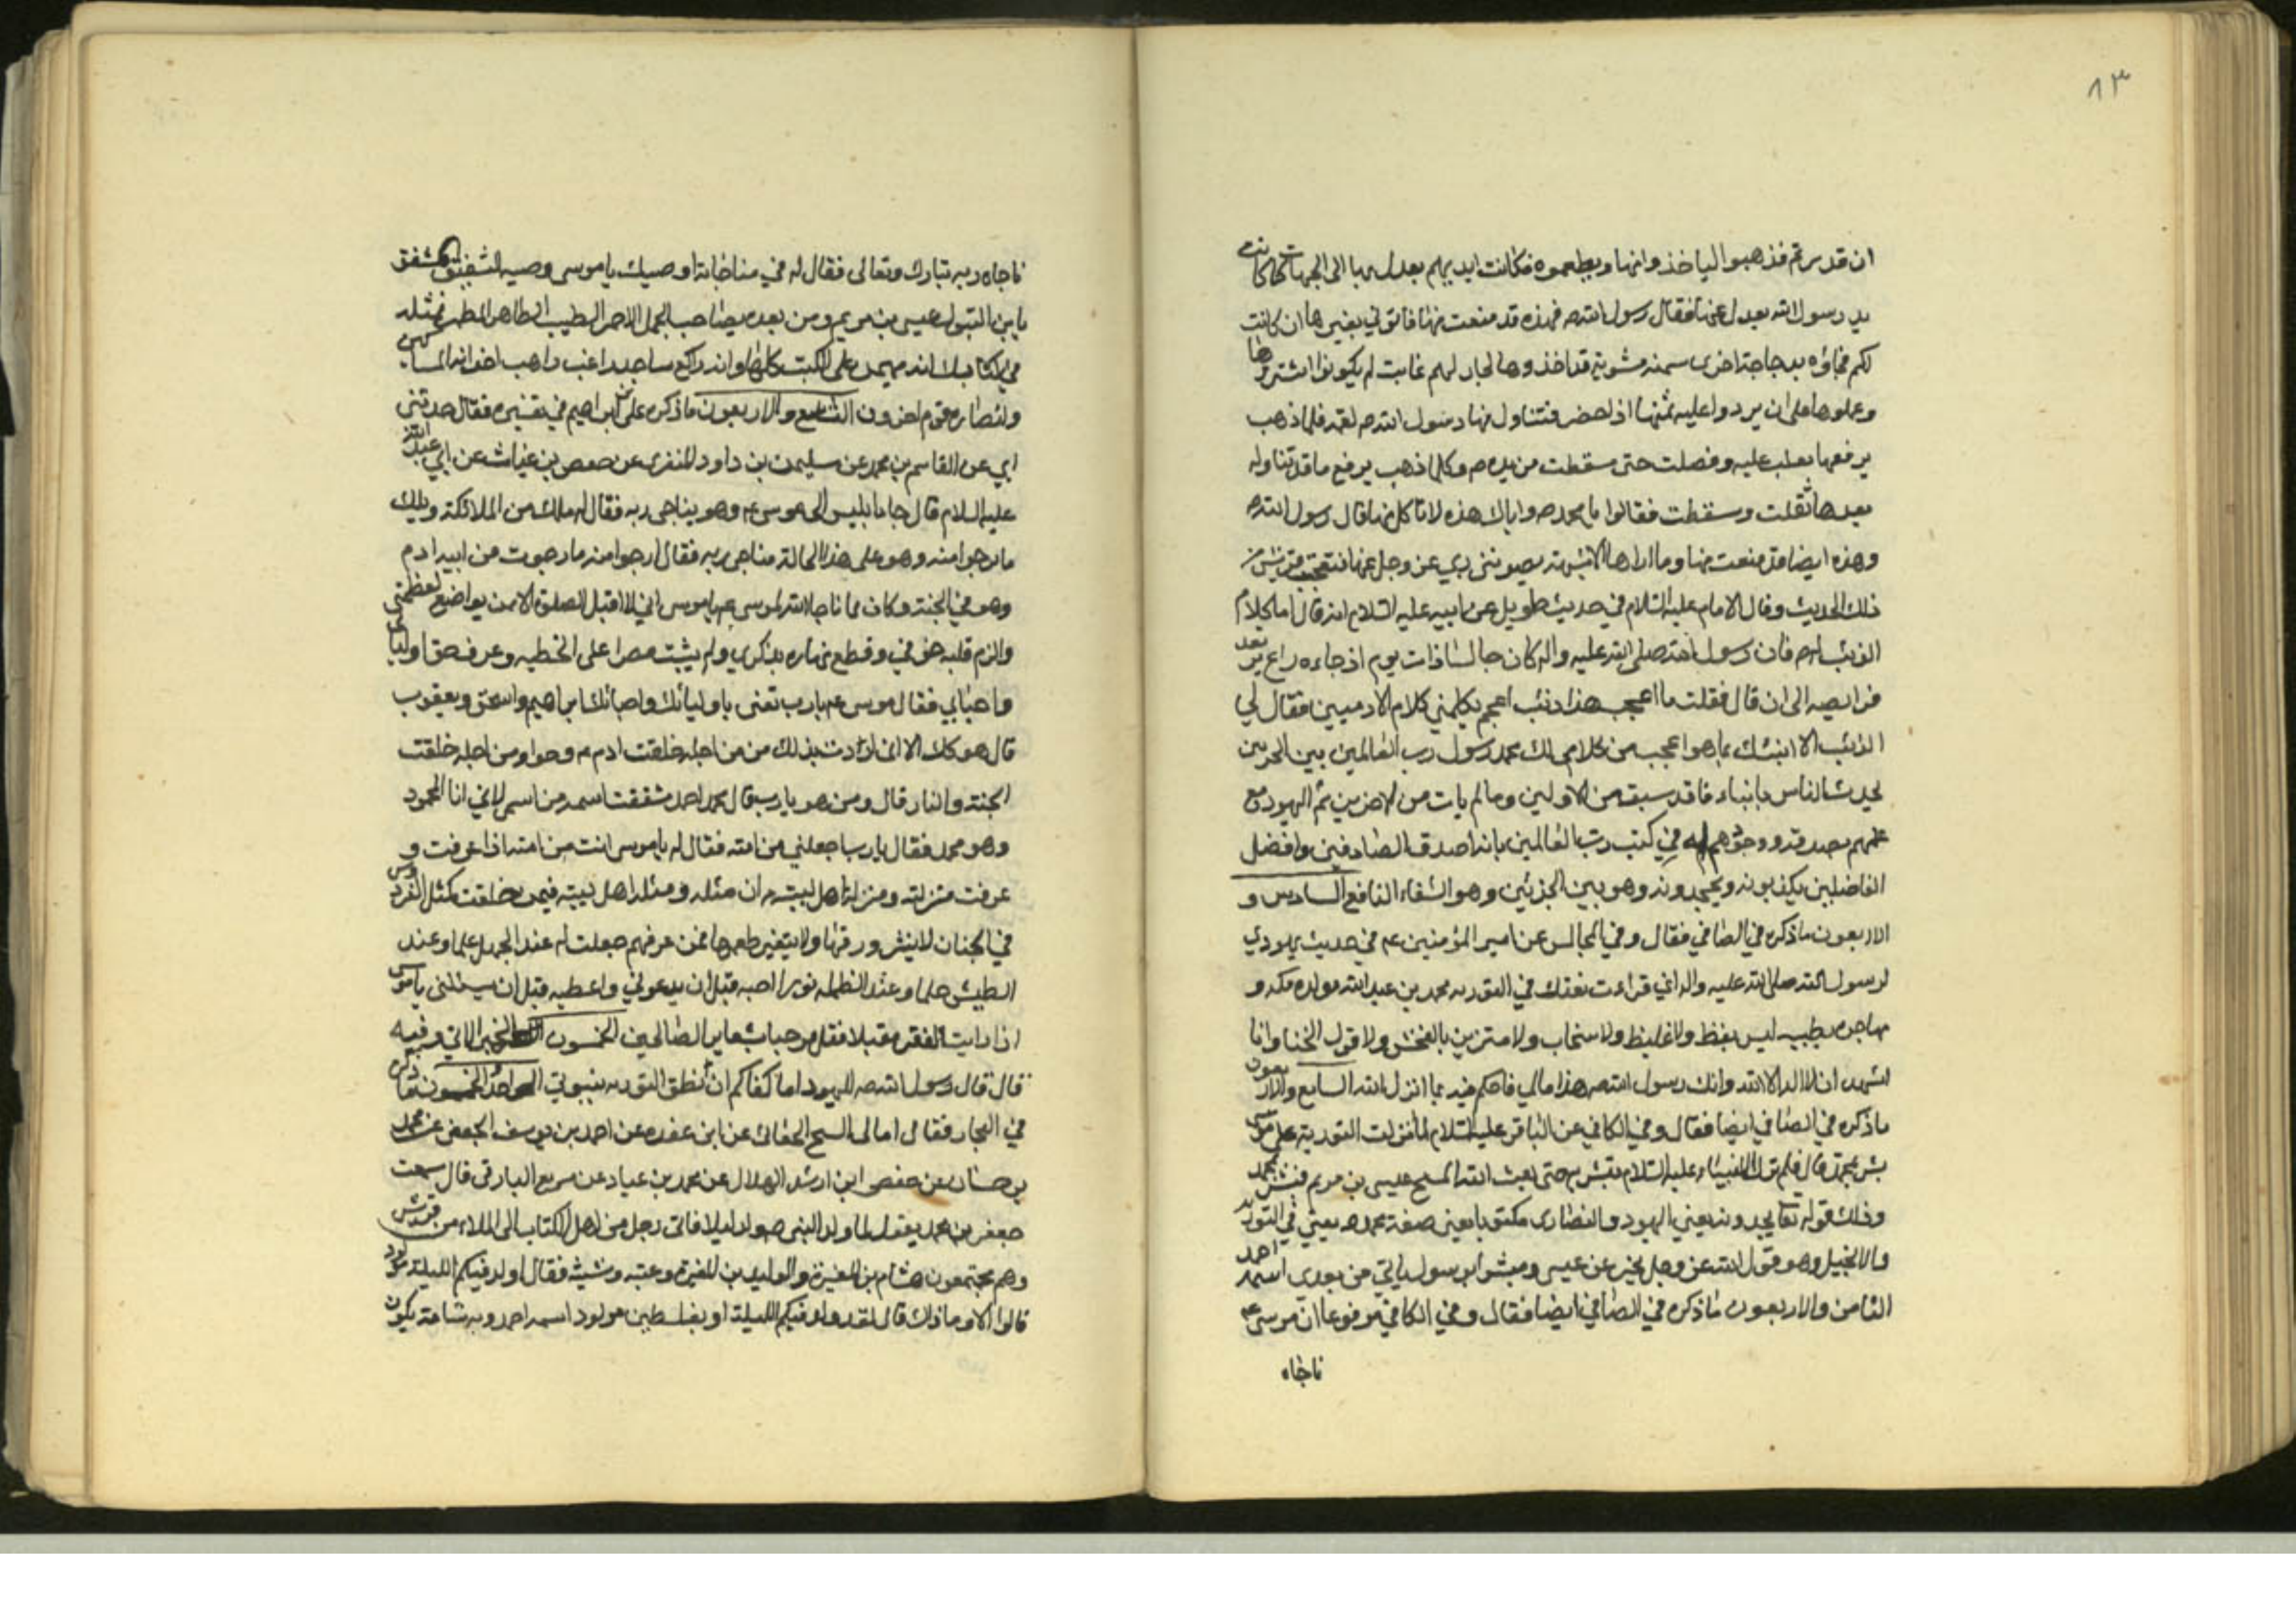 ١٣
ان قدرتم فذهبوا لياخذوا منها ويطعموه فكانت ايديهم يعدل بها الى الجهات كما كانت
يد رسول الله يعدل عنها فقال رسول الله ص فهذه قد منعت منها فاتوني بغيرها ان كانت
لكم فجاؤه بدجاجة اخرى سمنه مشوية قد اخذوها لجار لهم غايب لم يكونوا اشتروها
وعملوها على ان يردوا عليه ثمنها اذا حضر فتناول منها رسول الله ص لقمة فلما ذهب
يرفعها ثقلت عليه وفصلت حتى سقطت من يده ص وكلما ذهب يرفع ما قد تناوله
بعدها ثقلت وسقطت فقالوا يا محمد ص وما بال هذه لا تاكل منها قال رسول الله ص
وهذه ايضا قد منعت منها وما اراها الا شبهة يصونني ربي عز وجل عنها فتعجبت قريش من
ذلك الحديث وقال الامام عليه السلام في حديث طويل عن ابيه عليه السلام انه قال اما كلام
الذئب له ص فان رسول الله صلى الله عليه واله كان جالسا ذات يوم اذ جاءه راع ترتعد
فرايصه الى ان قال فقلت ما اعجب هذا ذئب اعجم يكلمني كلام الادميين فقال لي
الذئب الا انبئك بما هو اعجب من كلامي لك محمد رسول رب العالمين بين الحرتين
يحدث الناس بانباء ما قد سبق من الاولين وما لم يات من الاخرين ثم اليهود مع
علمهم بصدقه ووجودهم له في كتب رب العالمين بانه اصدق الصادقين وافضل
الفاضلين يكذبونه ويجحدونه وهو بين الحرتين وهو الشفاء النافع السادس و
الاربعون ما ذكره في الصافي فقال وفي المجالس عن امير المؤمنين ع في حديث يهودي
لرسول الله صلى الله عليه واله اني قرات نعتك في التوريه محمد بن عبد الله مولده مكه و
مهاجره بطيبه ليس بفظ ولا غليظ ولا سخاب ولا متزين بالفحش ولا قول الخنا وانا
اشهد ان لا اله الا الله وانك رسول الله ص هذا مالي فاحكم فيه بما انزل الله السابع والاربعون
ماذكره في الصافي ايضا فقال وفي الكافي عن الباقر عليه السلام لما نزلت التورية على موسى
بشر بمحمد قال فلم تزل الانبياء عليه السلام تبشر به حتى بعث الله المسيح عيسى بن مريم فبشر بمحمد
وذلك قوله تعا يجدونه يعني اليهود والنصارى مكتوبا يعني صفة محمد ص يعني في التورية
والانجيل وهو قول الله عز وجل يخبر عن عيسى ومبشرا برسول ياتي من بعدى اسمه احمد
الثامن والاربعون ما ذكره في الصافي ايضا فقال وفي الكافي مرفوعا ان موسى ع
ناجاه
ناجاه ربه تبارك وتعالى فقال له في مناجاته اوصيك يا موسى وصيه الشفيق المشفق
بابن البتول عيسى بن مريم ومن بعده بصاحب الجمل الاحمر الطيب الطاهر المطهر فمثله
في كتابك انه مهيمن على الكتب كلها وانه راكع ساجد راغب راهب اخوانه المساكين
وانصاره قوم اخرون التاسع والاربعون ما ذكره على بن ابراهيم في تفسيره فقال حدثني
ابي عن القاسم بن محمد عن سليمن بن داود المنقرى عن حفص بن غياث عن ابي عبد الله
عليه السلام قال جاء ابليس الى موسى ع وهو يناجى ربه فقال له ملك من الملائكة ويلك
ما ترجوا منه وهو على هذه الحالة مناجى ربه فقال ارجوا منه ما رجوت من ابيه ادم
وهو في الجنة وكان مما ناجا الله لموسى ع يا موسى اني لا اقبل الصلوة الا ممن تواضع لعظمتى
والزم قلبه خوفي وقطع نهاره بذكري ولم يثبت مصرا على الخطيه وعرف حق اوليائى
واحبائي فقال موسى ع يا رب تعنى باوليائك واحبائك ابراهيم واسحق ويعقوب
قال هو كك الا انى اردت بذلك من من اجله خلقت ادم ع وحوا ومن اجله خلقت
الجنة والنار قال ومن هو يا رب قال محمد احمد شققت اسمه من اسمى لاني انا المحمود
وهو محمد فقال يا رب اجعلني من امته فقال له يا موسى انت من امته اذا عرفت و
عرفت منزلته ومنزلة اهل بيته ان مثله ومثل اهل بيته فيمن خلقت كمثل الفردوس
في الجنان لا ينثر ورقها ولا يتغير طعمها فمن عرفهم جعلت له عند الجهل علما وعند
الطيش حلما وعند الظلمه نورا اجيبه قبل ان يدعوني واعطيه قبل ان يسئلنى يا موسى
اذا رايت الفقر مقبلا فقل مرحبا بشعار الصالحين الخمسون الخبر الاتي وفيه
قال قال رسول الله ص لليهود اما كفاكم ان انطق التوريه بنبوتي الواحد والخمسون ما ذكره
في البحار فقال امالى الشيخ الحفار عن ابن عقده عن احمد بن يوسف الجعفي عن محمد
بن حسان عن حفص ابن راشد الهلال عن محمد بن عباد عن سريع البارقى قال سمعت
جعفر بن محمد يقول لما ولد النبى ص ولد ليلا فاتى رجل من اهل الكتاب الى الملاء من قريش
وهم مجتمعون هشام بن المغيرة والوليد بن المغيرة وعتبه وشيبه فقال اولد فيكم الليلة مولود
قالوا لا وما ذلك قال لقد ولد فيكم الليلة او بفلسطين مولود اسمه احمد وبه شامة يكون